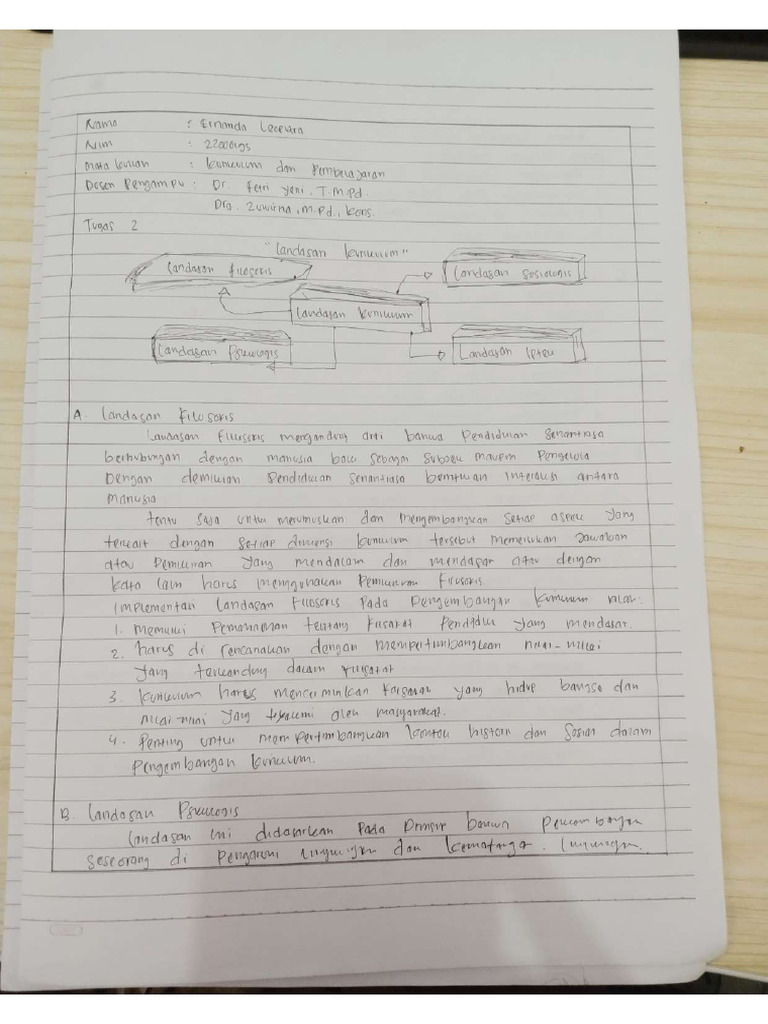 Nama : Ernanda
Nim :
Mata kuliah : kurikulum dan Pembelajaran
Dosen Pengampu : Dr. Fetri Yeni, T. M.Pd.
Dra. Zuwirna, M.Pd., Kons.
Tugas 2
"Landasan kurikulum"
Landasan Filosofis
Landasan Sosiologis
Landasan kurikulum
Landasan Psikologis
Landasan Iptek
A. Landasan Filosofis
Landasan Filosofis mengandung arti bahwa Pendidikan senantiasa
berhubungan dengan manusia baik sebagai subjek maupun Pengelola
Dengan demikian Pendidikan senantiasa bentukan interaksi antara
manusia
Tentu saja untuk merumuskan dan mengembangkan setiap aspek yang
terkait dengan setiap dimensi kurikulum tersebut memerlukan jawaban
atau Pemikiran yang mendalam dan mendasar atau dengan
kata lain harus menggunakan Pemikiran Filosofis
Implementasi Landasan Filosofis Pada Pengembangan kurikulum
1. memiliki Pemahaman tentang yang mendasar.
2. harus di rencanakan dengan mempertimbangkan nilai-nilai
yang terkandung dalam
3. kurikulum harus mencerminkan yang bangsa dan
nilai-nilai yang oleh masyarakat.
4. Penting untuk mempertimbangkan histori dan sosial dalam
Pengembangan kurikulum.
B. Landasan Psikologis
Landasan ini didasarkan Pada Prinsip bahwa
seseorang di Pengaruhi lingkungan dan